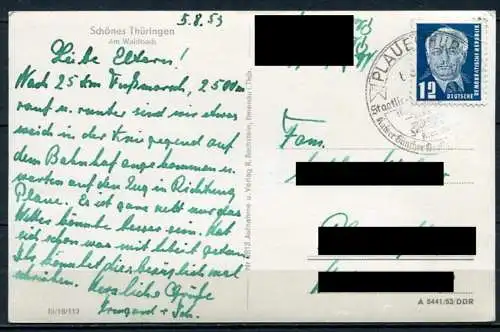 5.8.53
Schönes Thüringen
Am Waldbach
Liebe Eltern!
Nach 25 km Fußmarsch, 2500 m
rauf u. runter sind wir etwas
weich in der Kniegegend auf
dem Bahnhof angekommen u.
warten auf den Zug in Richtung
Plaue. Es ist ganz nett nur das
Wetter könnte besser sein. Hat
sich schon was mit getan.
Ihr könntet diesbezüglich mal
schreiben. Herzliche Grüße
Irmgard u.
IV/16/113
Aufnahme u. Verlag R. Bechstein,
PLAUE
Staatlich
12
DEUTSCHE
DEMOKRATISCHE REPUBLIK
Fam.
A 5441/53/DDR